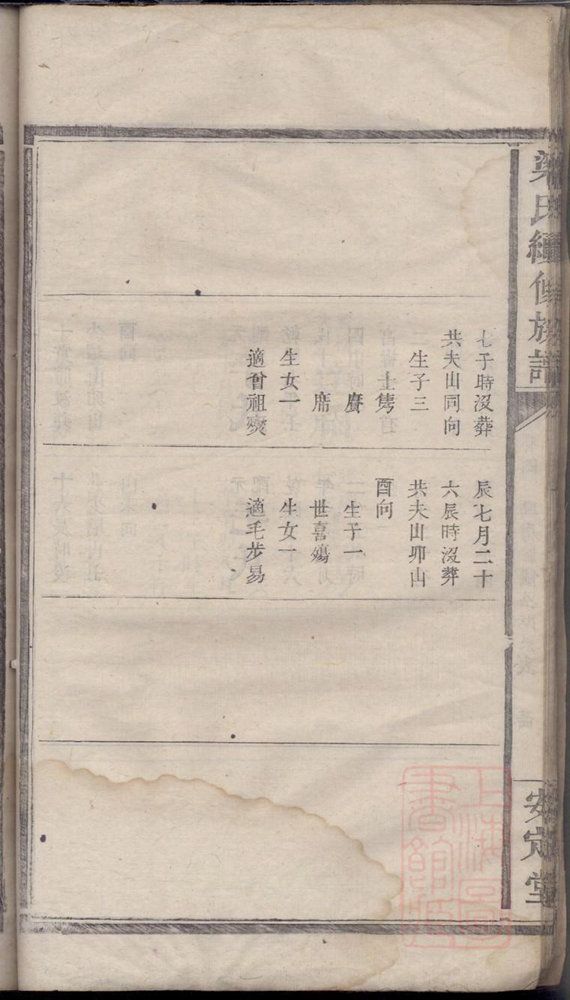 梁氏續修族譜
七子時沒葬
共夫山同向
二生子三
士雋
賡
席
生女一
適曾祖爕
辰七月二十
六辰時沒葬
共夫山卯山
酉向
一生子一
世喜殤
生女一
適毛步易
安定堂
上海圖書館藏